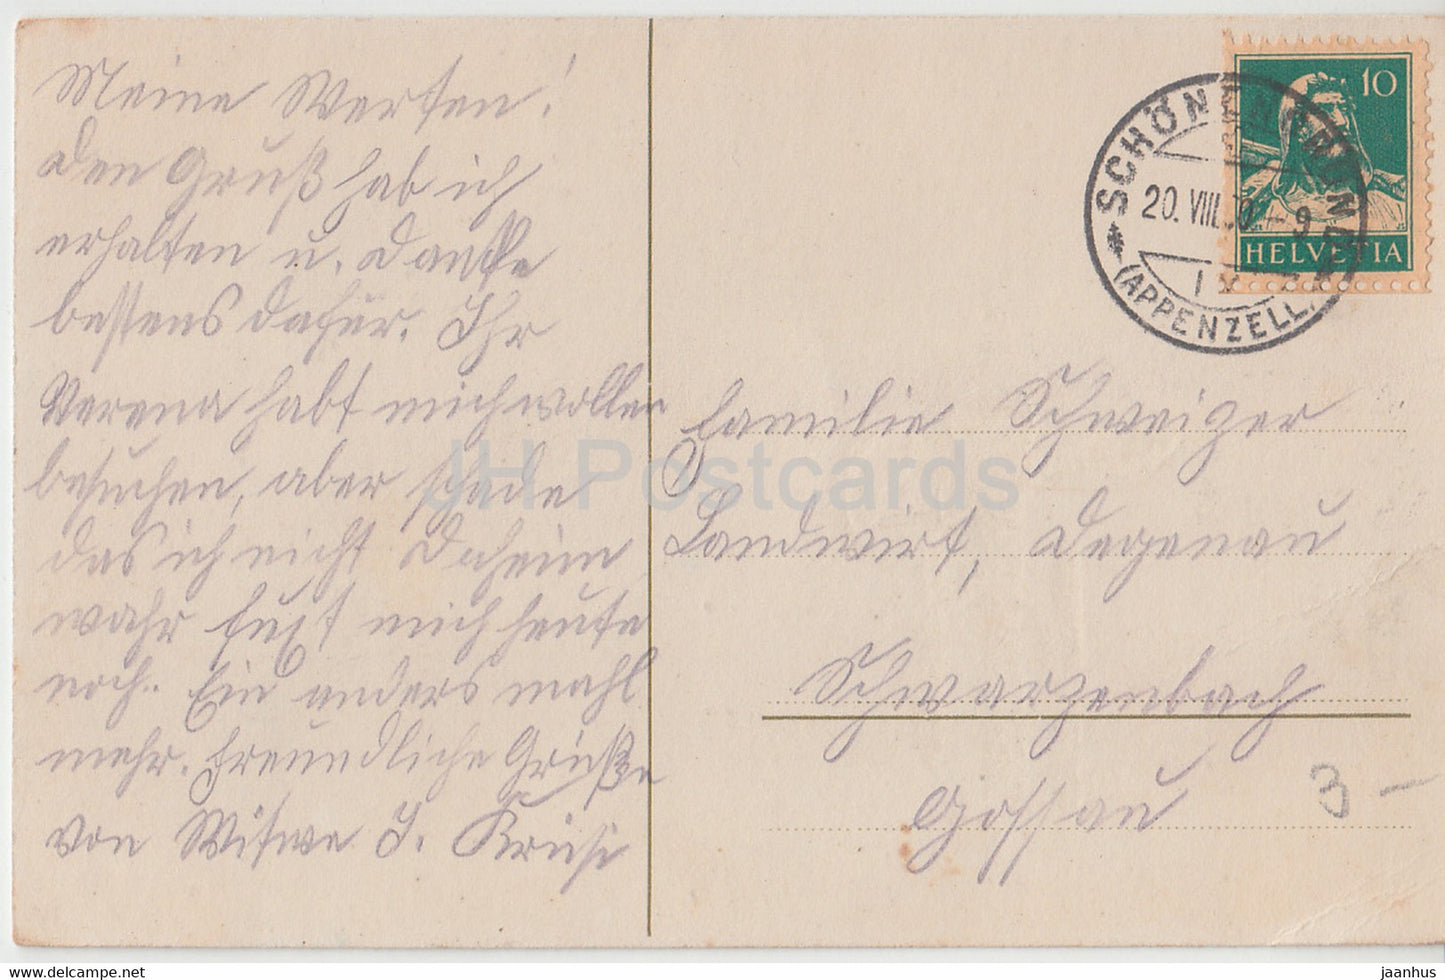 Meine Werten!
den Gruß hab ich
erhalten u. danke
bestens dafür. Ihr
Verena habt mich wollen
besuchen, aber schade
das ich nicht daheim
wahr freut mich heute
noch. Ein anders mahl
mehr. Freundliche Grüße
von Witwe J. Krüsi
10
HELVETIA
SCHÖNENGRUND
20. VIII. 30 - 9
(APPENZELL)
Familie Schweizer
Landwirt, Degenau
Schwarzenbach
Gossau
3 -
JH Postcards
hip.com
jaanhus